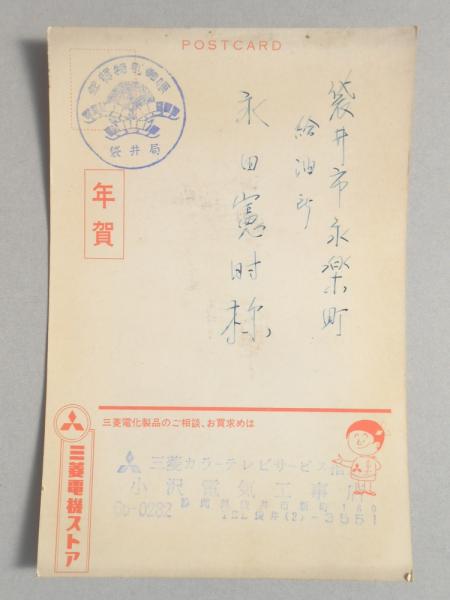 POSTCARD
袋井局
年賀
袋井市永楽町
給油所
永田憲時様
三菱電化製品のご相談、お買求めは
三菱電機ストア
三菱カラーテレビサービス店
小沢電気工事店
TEL袋井(2)-3551